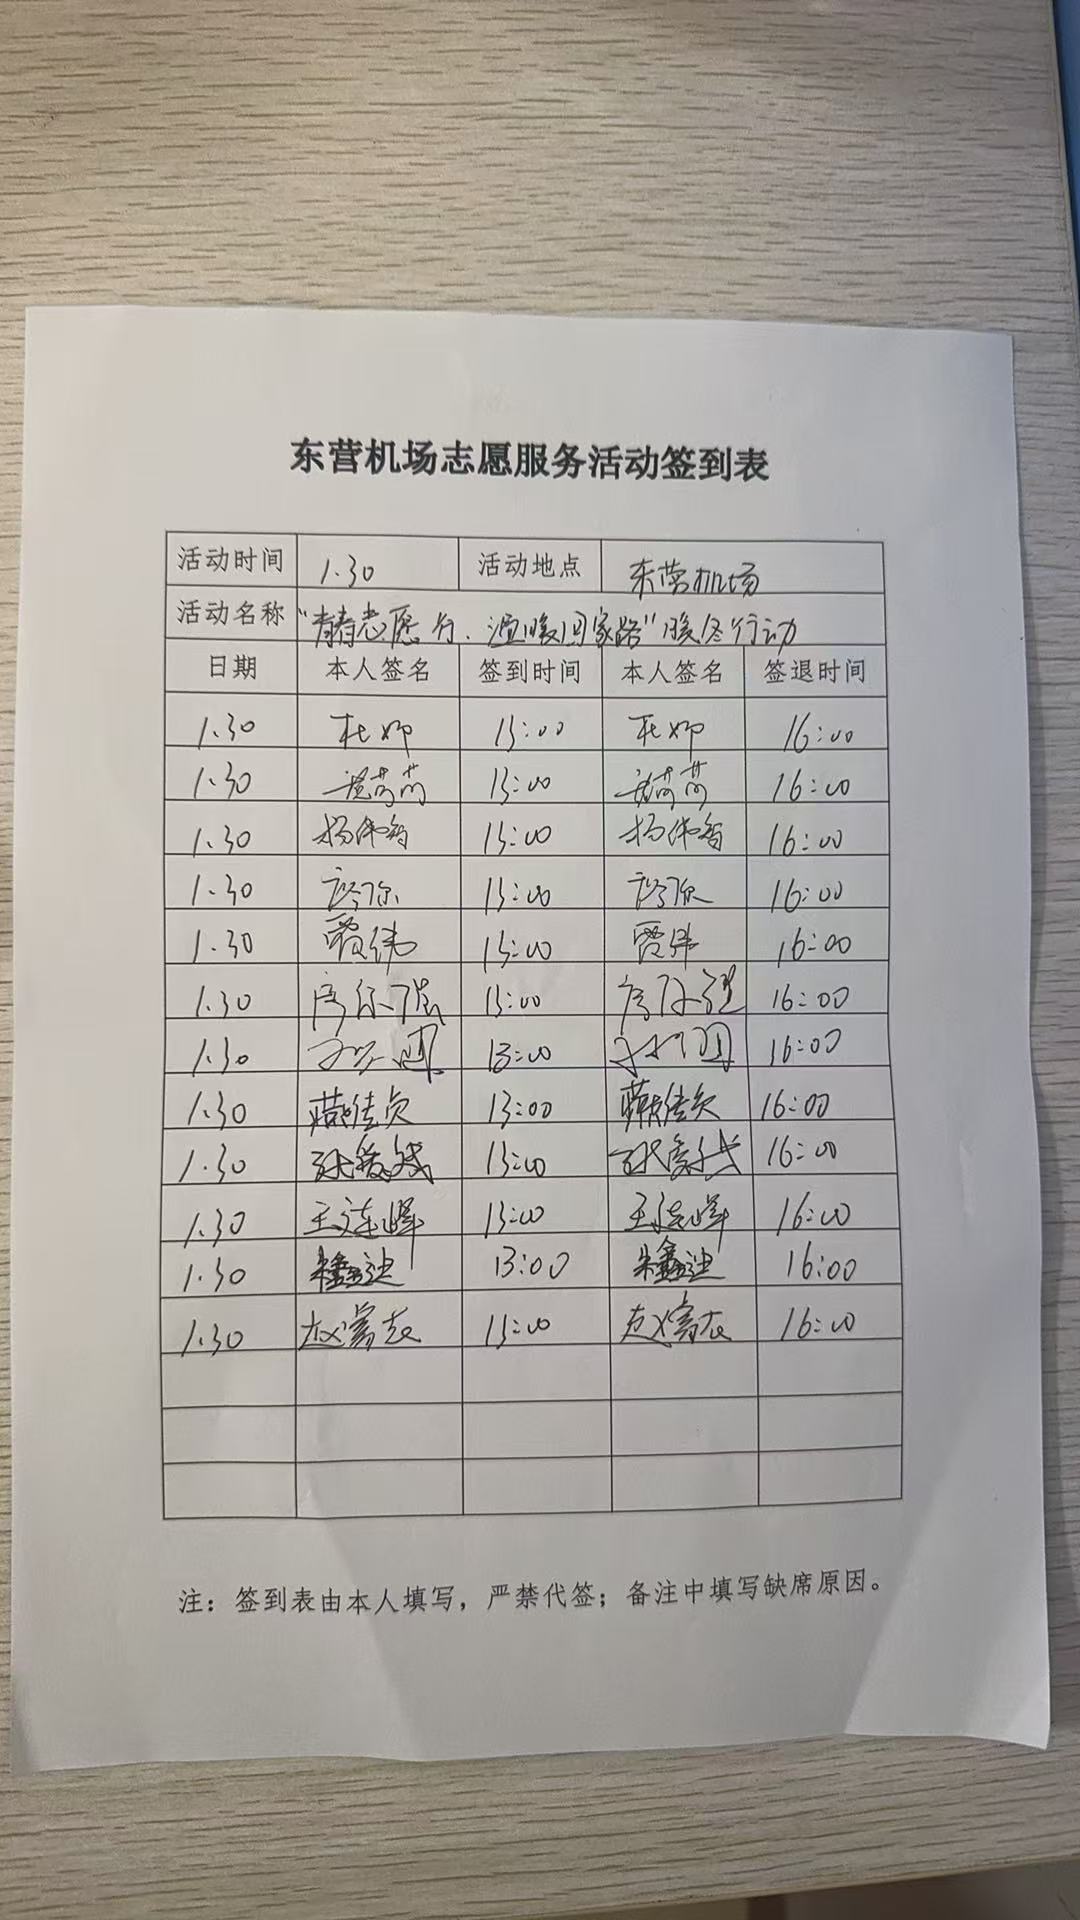 东营机场志愿服务活动签到表
活动时间 1.30 活动地点 东营机场
活动名称 "青春志愿行.温暖回家路"暖冬行动
日期 本人签名 签到时间 本人签名 签退时间
1.30 杜娜 13:00 杜娜 16:00
1.30 13:00 16:00
1.30 杨伟智 13:00 杨伟智 16:00
1.30 13:00 16:00
1.30 贾伟 13:00 贾伟 16:00
1.30 13:00 16:00
1.30 13:00 16:00
1.30 13:00 16:00
1.30 13:00 16:00
1.30 王连峰 13:00 王连峰 16:00
1.30 朱鑫迪 13:00 朱鑫迪 16:00
1.30 13:00 16:00
注：签到表由本人填写，严禁代签；备注中填写缺席原因。